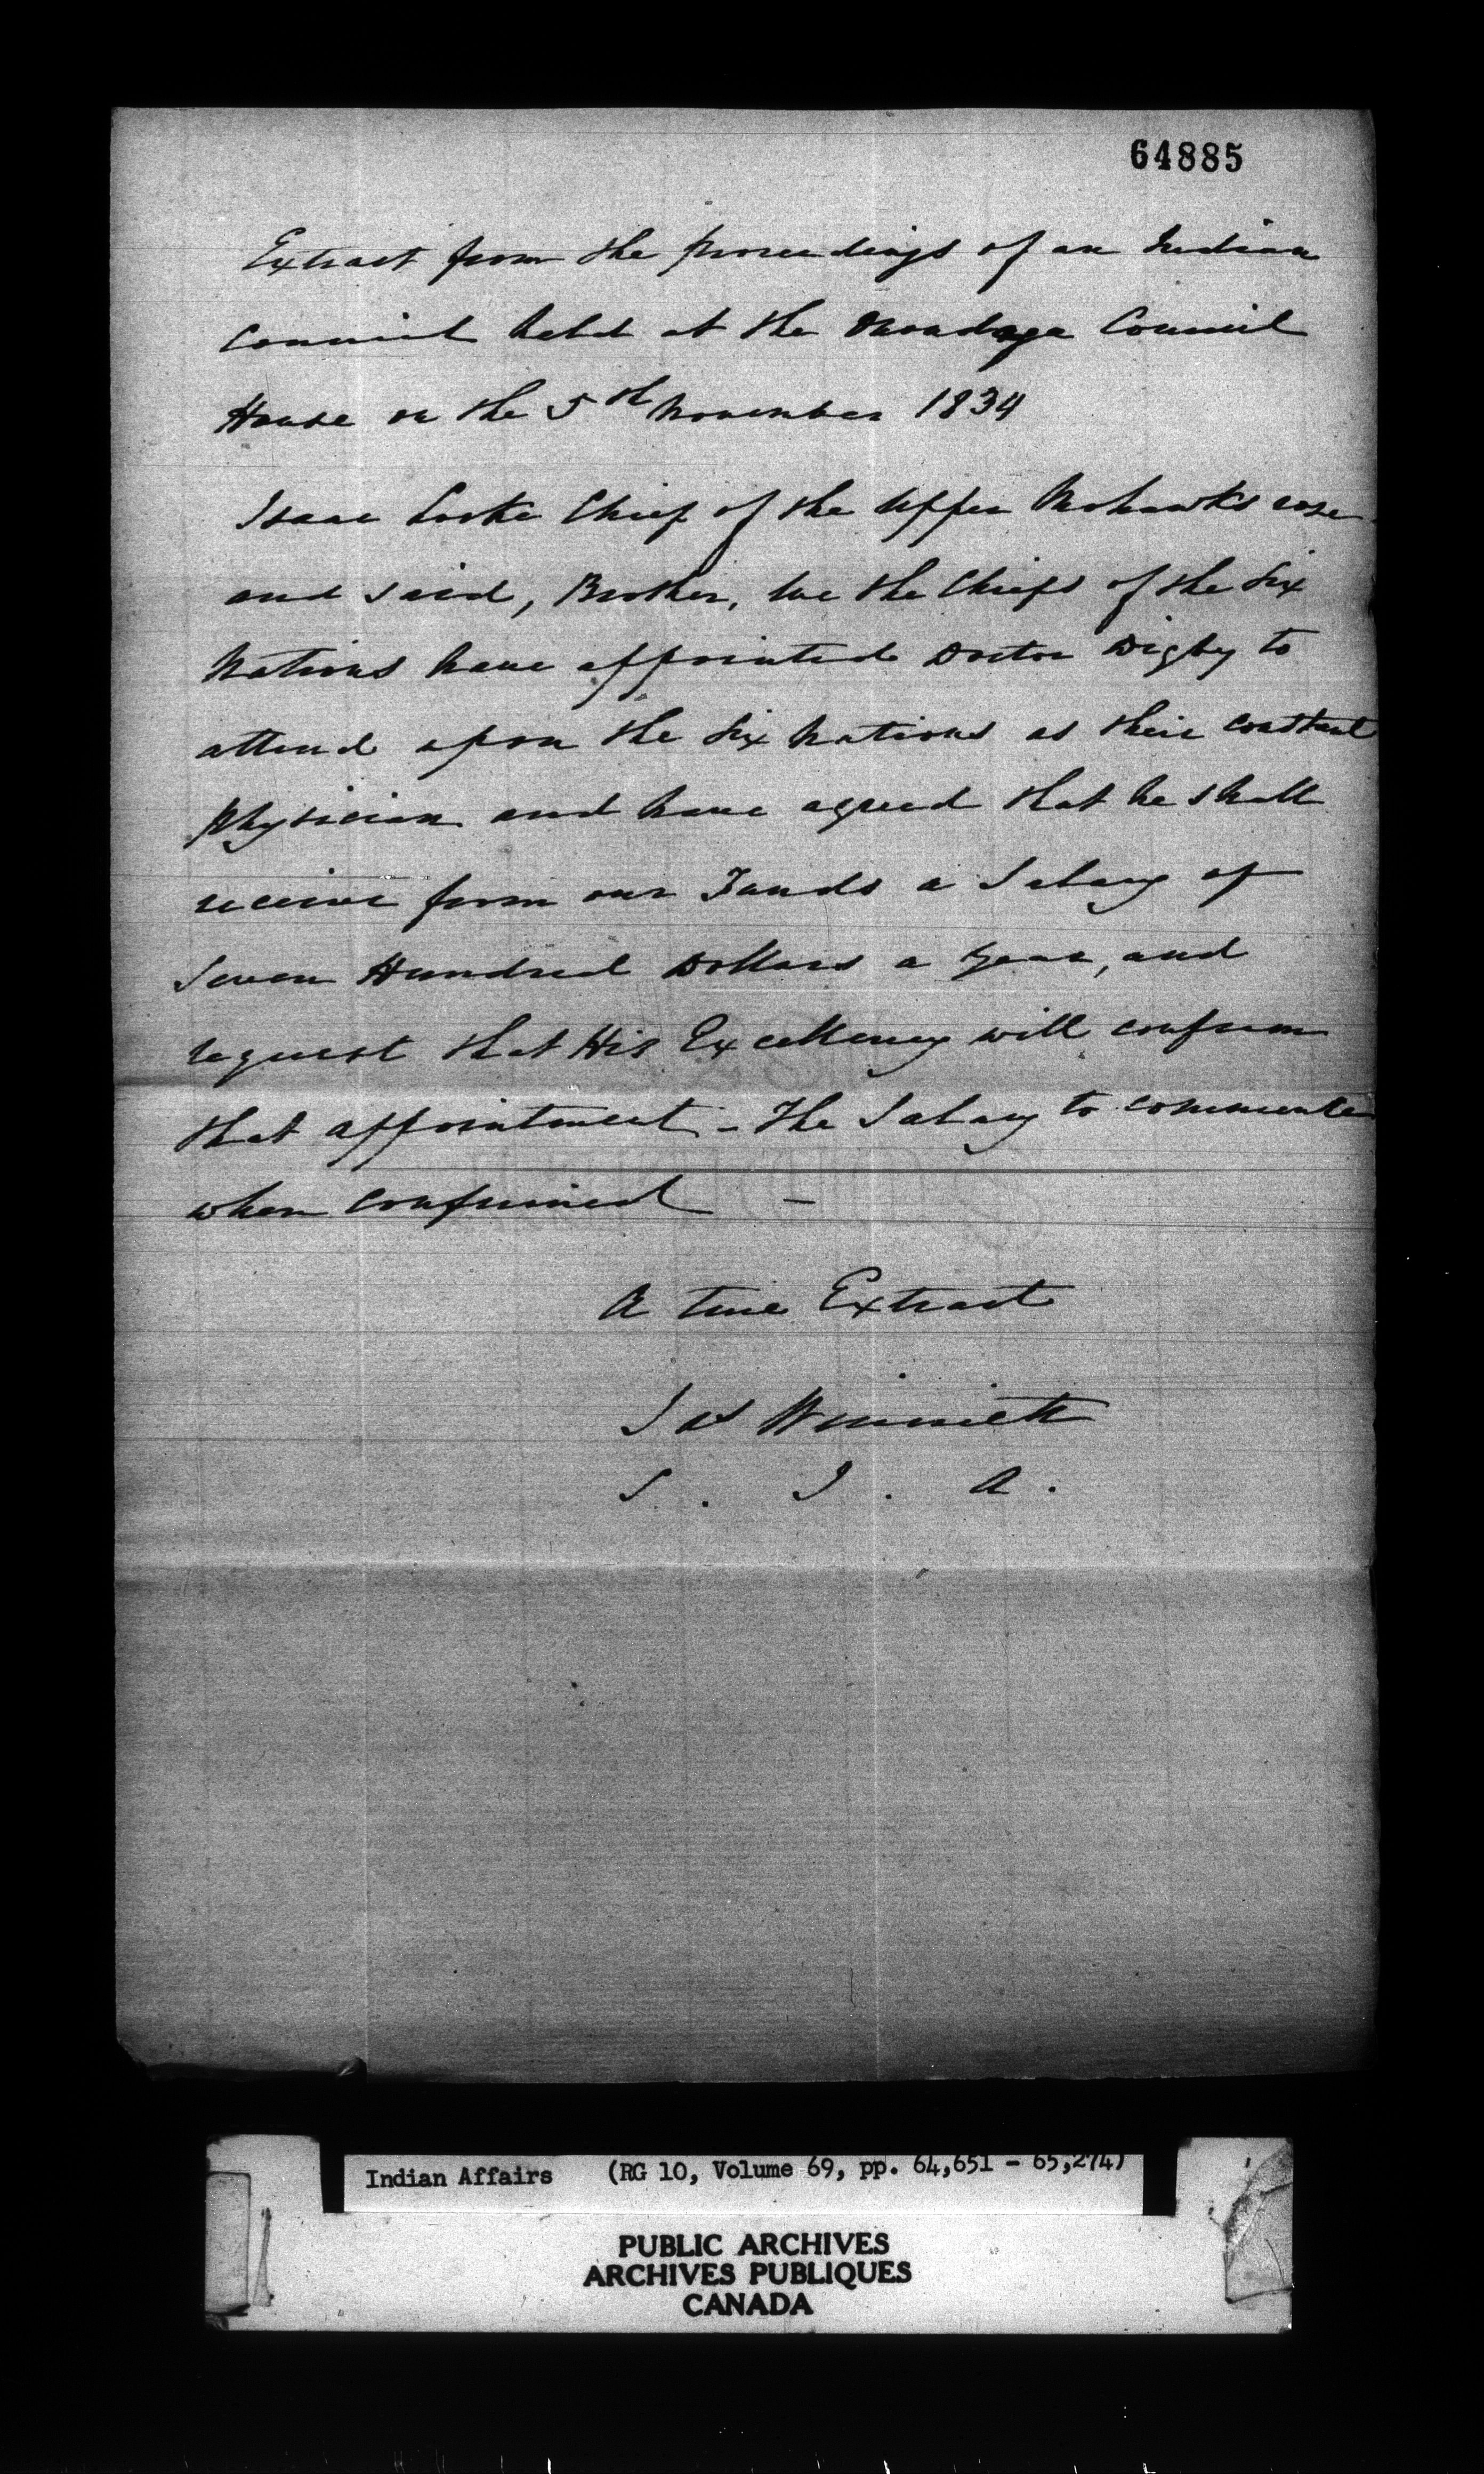 64885
Extract from the proceedings of an Indian
Council held at the Onondaga Council
House on the 5th November 1834
Isaac Locke Chief of the Upper Mohawks rose
and said, Brother, We the Chiefs of the Six
Nations have appointed Doctor Digby to
attend upon the Six Nations as their constant
physician and have agreed that he shall
receive from our Funds a Salary of
Seven Hundred Dollars a Year, and
request that His Excellency will confirm
that appointment - The Salary to commence
when confirmed -
A true Extract
Jas Winniett
S. I. A.
Indian Affairs (RG 10, Volume 69, pp. 64,651 - 65,274)
PUBLIC ARCHIVES
ARCHIVES PUBLIQUES
CANADA